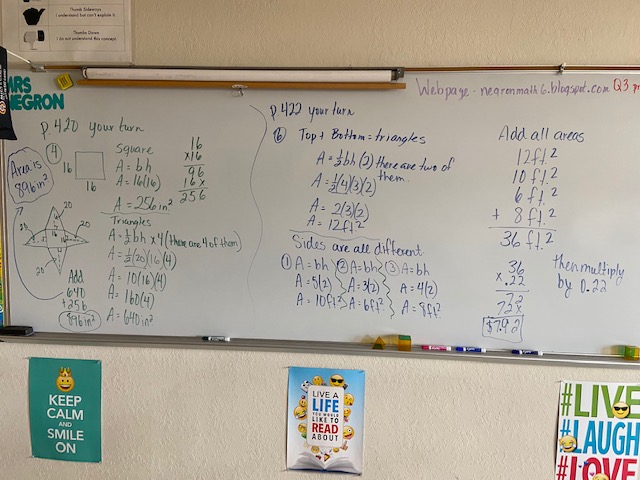 Thumb Sideways
I understand but can't explain it.
Thumbs Down
I do not understand this concept.
MRS
NEGRON
Webpage - negronmath6.blogspot.com Q3
p.420 your turn
4
Area is
896in²
16
16
20
20
20
20
16
Add
640
+256
896in²
square
A = bh
A = 16(16)
A = 256in²
16
x16
96
16x
256
Triangles
A = ½bh x 4 (there are 4 of them)
A = ½(20)(16)(4)
A = 10(16)(4)
A = 160(4)
A = 640in²
p.422 your turn
6
Top + Bottom = triangles
A = ½bh(2) there are two of them.
A = ½(4)(3)(2)
A = 2(3)(2)
A = 12ft²
Sides are all different
1 A = bh
A = 5(2)
A = 10ft²
2 A = bh
A = 3(2)
A = 6ft²
3 A = bh
A = 4(2)
A = 8ft²
Add all areas
12ft.²
10ft.²
6ft.²
+ 8ft.²
36ft.²
36
x.22
72
72x
$7.92
then multiply
by 0.22
KEEP
CALM
AND
SMILE
ON
LIVE A
LIFE
YOU WOULD
LIKE TO
READ
ABOUT
#LIVE
#LAUGH
#LOVE